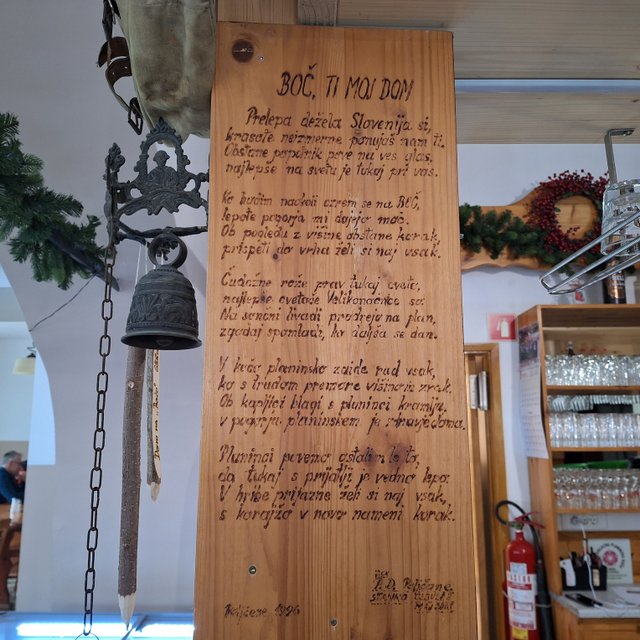 BOČ, TI MOJ DOM
Prelepa dežela Slovenija si,
krasote neizmerne ponujaš nam ti.
Obstane popotnik prve na ves glas,
najlepše na svetu je tukaj pri vas.
Ko hodim naokoli ozrem se na BOČ,
lepote pogorja mi dajejo moč.
Ob pogledu z višine obstane korak,
prispeti do vrha želi si naj vsak.
Čudežne rože prav tukaj cveto,
najlepše cvetoče Velikonočnice so.
Na sončni livadi prodrejo na plan,
zgodaj spomladi, ko daljša se dan.
V kočo planinsko zaide rad vsak,
ko s trudom premore višinski zrak.
Ob kapljici blagi s planinci kramlja,
v pogorju planinskem je doma.
Planinci povemo ostalim le to,
da tukaj s prijatlji je vedno lepo.
V hribe prijazne želi si naj vsak,
s korajžo v novo nameni korak.
P.D. Poljčane